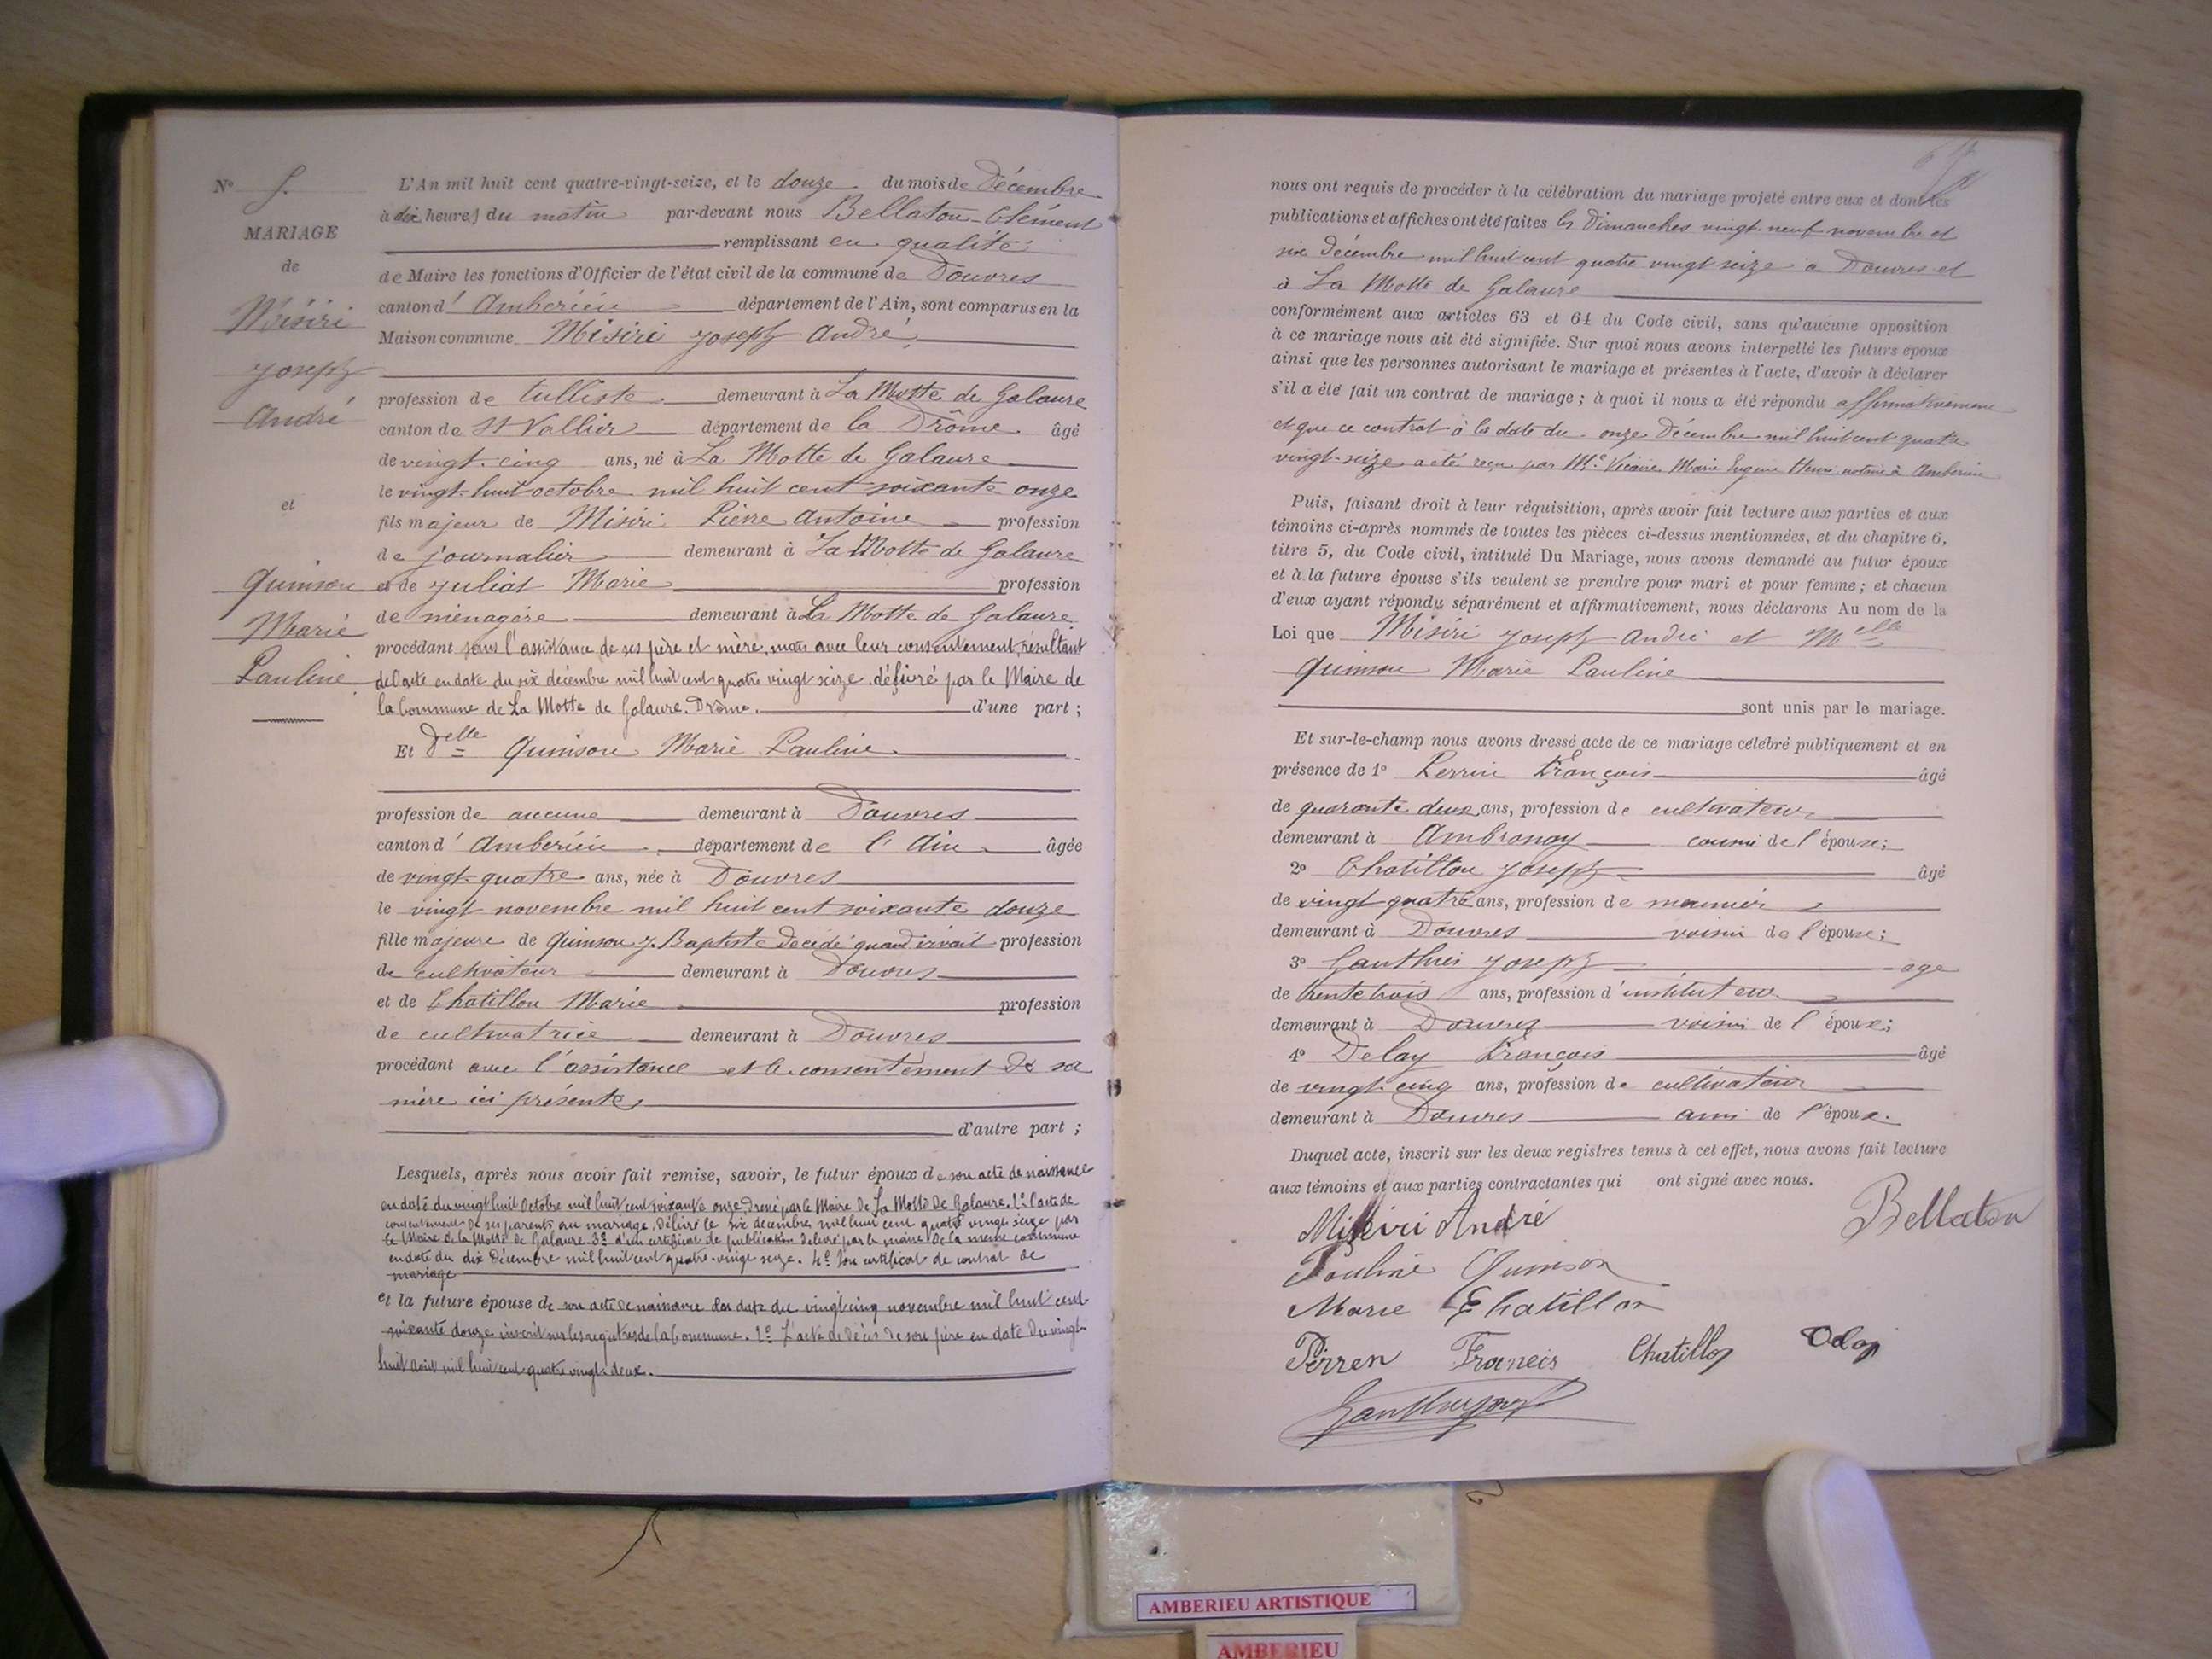 N° 5.
MARIAGE
de
Misiri
Joseph
André
et
Quinson
Marie
Pauline
L'An mil huit cent quatre-vingt-seize, et le douze du mois de Décembre
à dix heures du matin par-devant nous Bellaton Clément
remplissant en qualité
de Maire les fonctions d'Officier de l'état civil de la commune de Douvres
canton d'Ambérieu département de l'Ain, sont comparus en la
Maison commune Misiri Joseph André
profession de tulliste demeurant à La Motte de Galaure
canton de St Vallier département de la Drôme âgé
de vingt-cinq ans, né à La Motte de Galaure
le vingt-huit octobre mil huit cent soixante onze
fils majeur de Misiri Pierre Antoine profession
de journalier demeurant à La Motte de Galaure
et de Juliat Marie profession
de ménagère demeurant à La Motte de Galaure
procédant sans l'assistance de ses père et mère, mais avec leur consentement, résultant
de l'acte en date du six décembre mil huit cent quatre vingt seize délivré par le Maire de
la Commune de La Motte de Galaure. Drôme. d'une part ;
Et Delle Quinson Marie Pauline
profession de aucune demeurant à Douvres
canton d'Ambérieu département de l'Ain âgée
de vingt-quatre ans, née à Douvres
le vingt novembre mil huit cent soixante douze
fille majeure de Quinson J. Baptiste décédé quand vivait profession
de cultivateur demeurant à Douvres
et de Chatillon Marie profession
de cultivatrice demeurant à Douvres
procédant avec l'assistance et le consentement de sa
mère ici présente
d'autre part ;
Lesquels, après nous avoir fait remise, savoir, le futur époux de son acte de naissance
en date du vingt huit Octobre mil huit cent soixante onze, dressé par le Maire de La Motte de Galaure. 2° l'acte de
consentement de ses parents au mariage, délivré le six décembre mil huit cent quatre vingt seize par
le Maire de la Motte de Galaure. 3° d'un certificat de publication délivré par le maire de la même commune
en date du dix Décembre mil huit cent quatre-vingt seize. 4° Son certificat de contrat de
mariage
et la future épouse de son acte de naissance en date du vingt cinq novembre mil huit cent
soixante douze inscrit sur les registres de la Commune. 2° L'acte de décès de son père en date du vingt-
huit août mil huit cent quatre vingt-deux.
nous ont requis de procéder à la célébration du mariage projeté entre eux et dont les
publications et affiches ont été faites les Dimanches vingt-neuf novembre et
six Décembre mil huit cent quatre vingt seize à Douvres et
à La Motte de Galaure
conformément aux articles 63 et 64 du Code civil, sans qu'aucune opposition
à ce mariage nous ait été signifiée. Sur quoi nous avons interpellé les futurs époux
ainsi que les personnes autorisant le mariage et présentes à l'acte, d'avoir à déclarer
s'il a été fait un contrat de mariage ; à quoi il nous a été répondu affirmativement
et que ce contrat à la date du onze Décembre mil huit cent quatre
vingt-seize a été reçu par Me Vicaire Marie Eugène Henri notaire à Ambérieu
Puis, faisant droit à leur réquisition, après avoir fait lecture aux parties et aux
témoins ci-après nommés de toutes les pièces ci-dessus mentionnées, et du chapitre 6,
titre 5, du Code civil, intitulé Du Mariage, nous avons demandé au futur époux
et à la future épouse s'ils veulent se prendre pour mari et pour femme ; et chacun
d'eux ayant répondu séparément et affirmativement, nous déclarons Au nom de la
Loi que Misiri Joseph André et Melle
Quinson Marie Pauline
sont unis par le mariage.
Et sur-le-champ nous avons dressé acte de ce mariage célébré publiquement et en
présence de 1° Perrin François âgé
de quarante deux ans, profession de cultivateur
demeurant à Ambronay cousin de l'épouse ;
2° Chatillon Joseph âgé
de vingt quatre ans, profession de meunier
demeurant à Douvres voisin de l'épouse ;
3° Gauthier Joseph âgé
de trente trois ans, profession d'instituteur
demeurant à Douvres voisin de l'épouse ;
4° Delay François âgé
de vingt cinq ans, profession de cultivateur
demeurant à Douvres ami de l'époux.
Duquel acte, inscrit sur les deux registres tenus à cet effet, nous avons fait lecture
aux témoins et aux parties contractantes qui ont signé avec nous.
Misiri André
Bellaton
Pauline Quinson
Marie Chatillon
Perren Francis Chatillon
AMBERIEU ARTISTIQUE
AMBERIEU